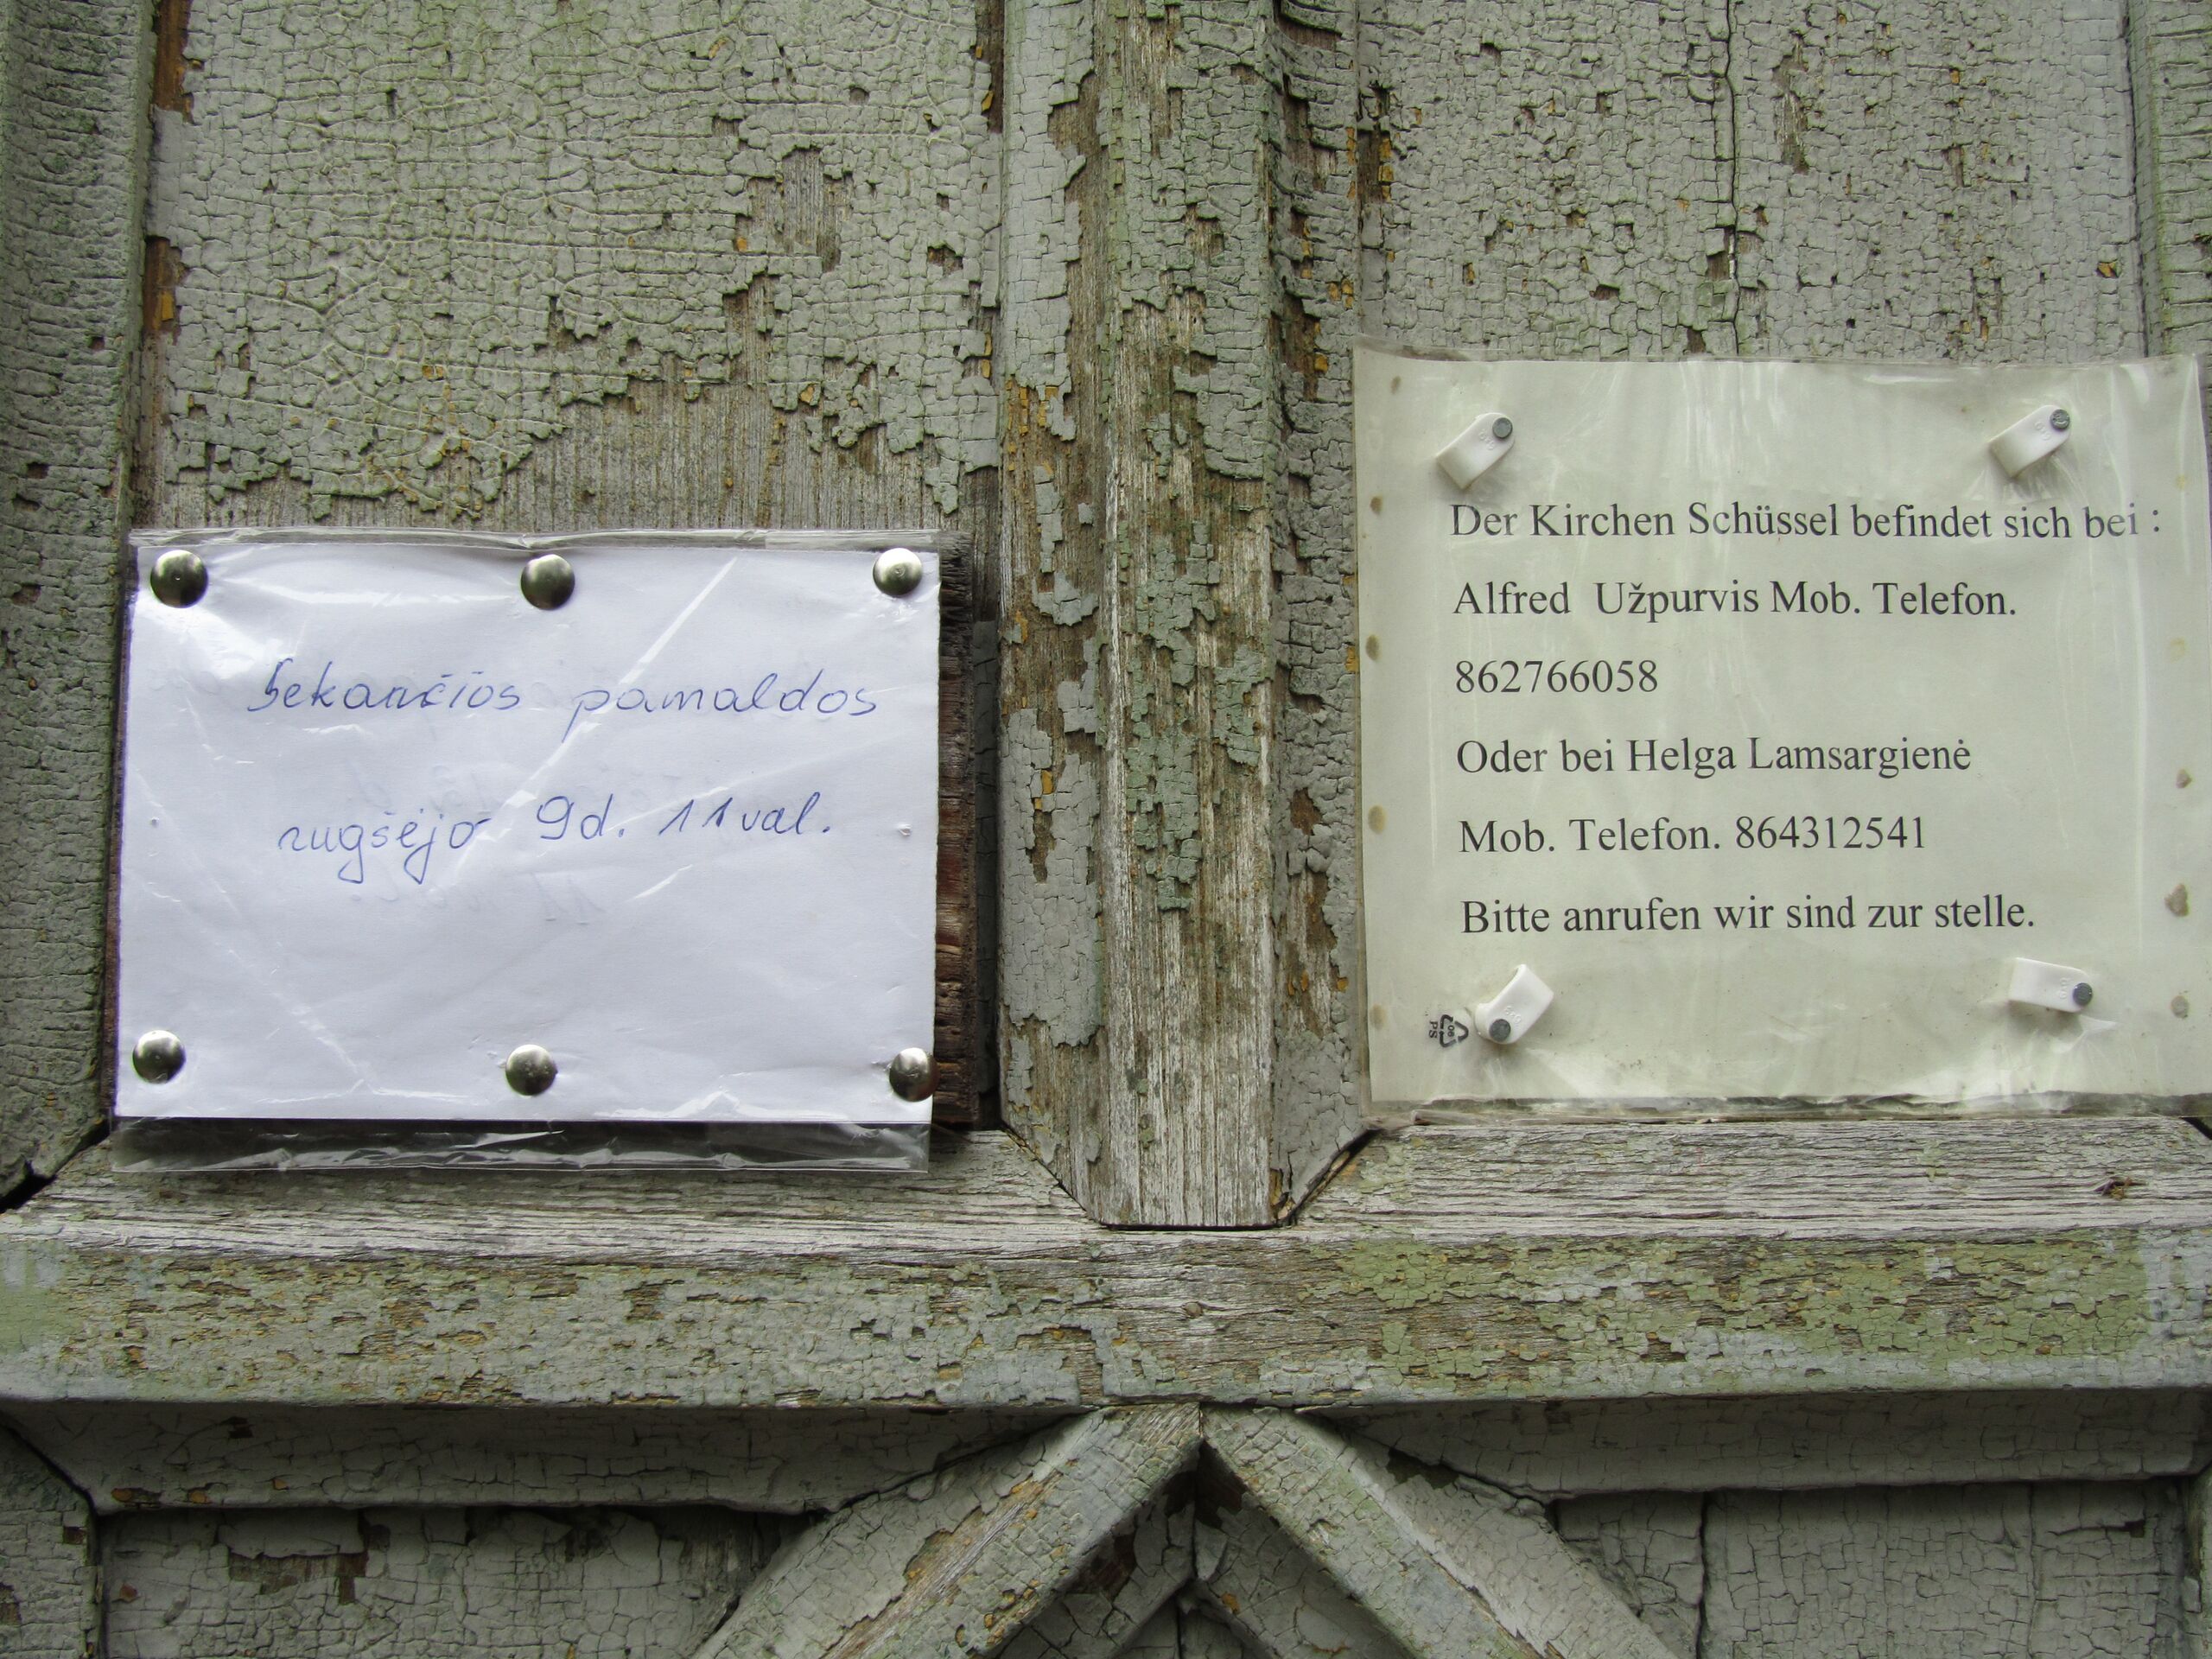 Sekančios pamaldos
rugšėjo 9d. 11val.
Der Kirchen Schüssel befindet sich bei :
Alfred Užpurvis Mob. Telefon.
862766058
Oder bei Helga Lamsargienė
Mob. Telefon. 864312541
Bitte anrufen wir sind zur stelle.
06
PS